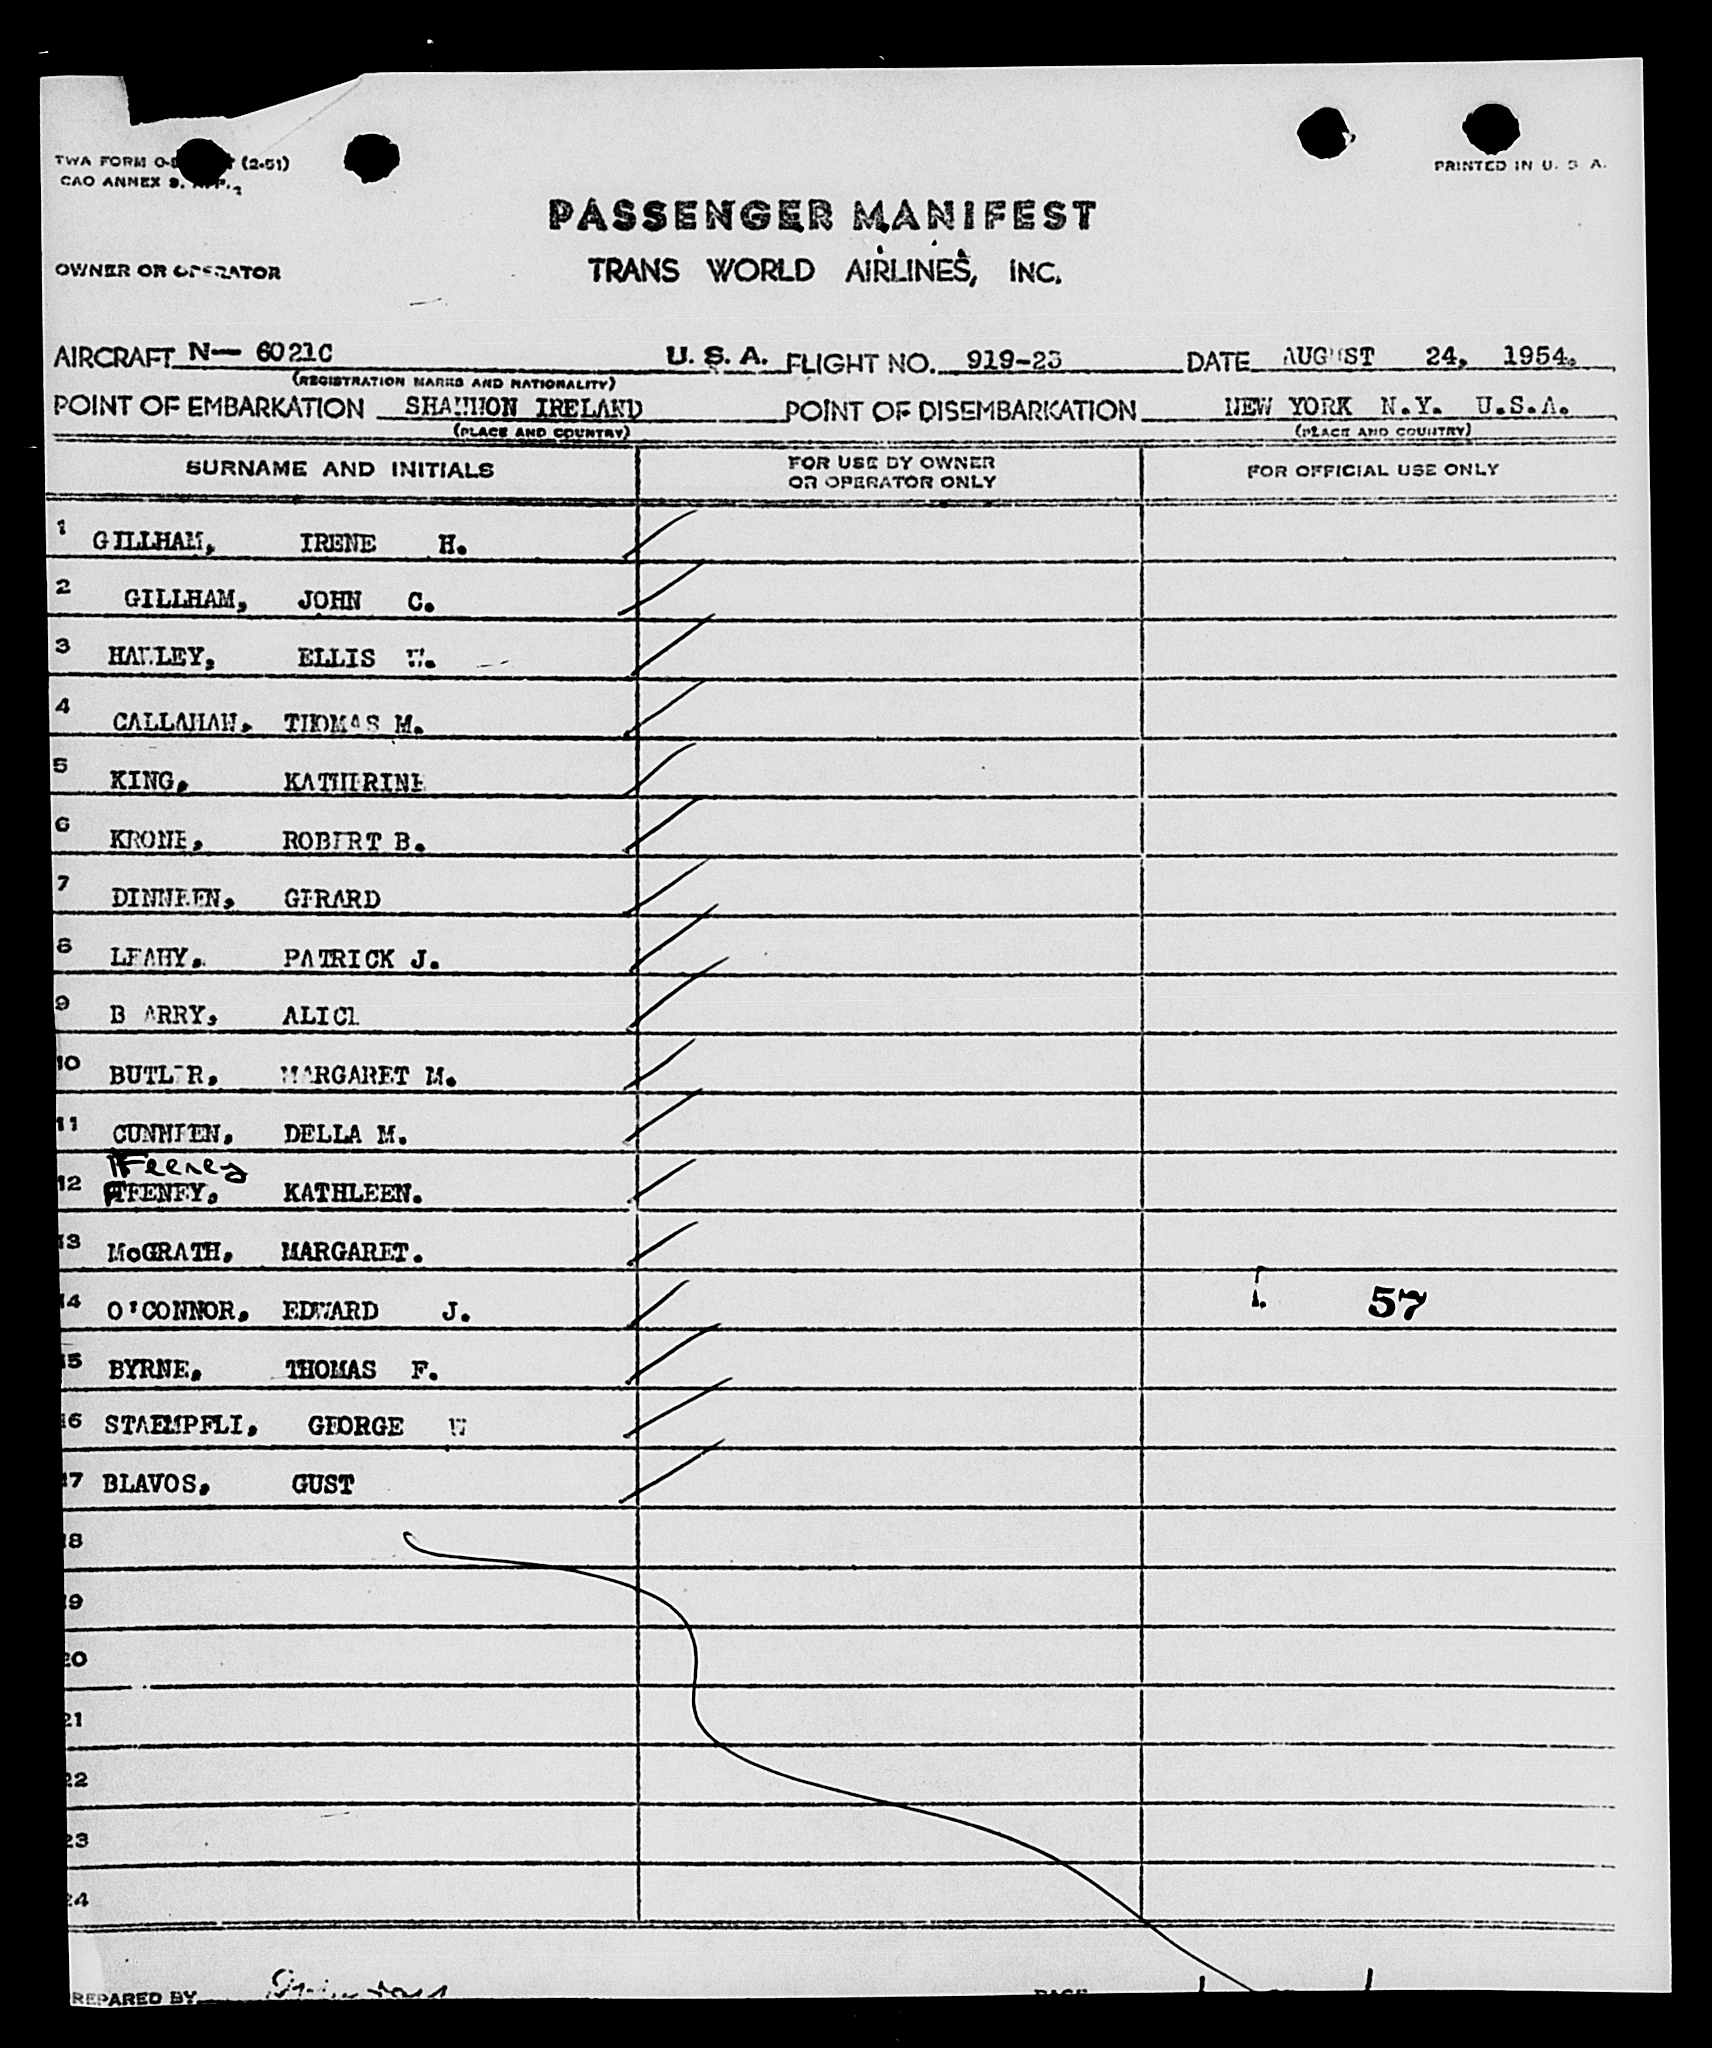 TWA FORM O- (2-51)
PRINTED IN U. S. A.
CAO ANNEX 9, APP. 2
PASSENGER MANIFEST
OWNER OR OPERATOR
TRANS WORLD AIRLINES, INC.
AIRCRAFT N— 6021C U. S. A. FLIGHT NO. 919-23 DATE AUGUST 24, 1954.
(REGISTRATION MARKS AND NATIONALITY)
POINT OF EMBARKATION SHANNON IRELAND POINT OF DISEMBARKATION NEW YORK N.Y. U.S.A.
(PLACE AND COUNTRY) (PLACE AND COUNTRY)
SURNAME AND INITIALS FOR USE BY OWNER OR OPERATOR ONLY FOR OFFICIAL USE ONLY
1 GILLHAM, IRENE H.
2 GILLHAM, JOHN C.
3 HAWLEY, ELLIS W.
4 CALLAHAN, THOMAS M.
5 KING, KATHERINE
6 KRONE, ROBERT B.
7 DINNEEN, GERARD
8 LEAHY, PATRICK J.
9 B ARRY, ALICE
10 BUTLER, MARGARET M.
11 CUNNIEN, DELLA M.
Feeney
12 FEENEY, KATHLEEN.
13 McGRATH, MARGARET.
14 O'CONNOR, EDWARD J. 57
15 BYRNE, THOMAS F.
16 STAEMPFLI, GEORGE W
17 BLAVOS, GUST
18
19
20
21
22
23
24
PREPARED BY PAGE